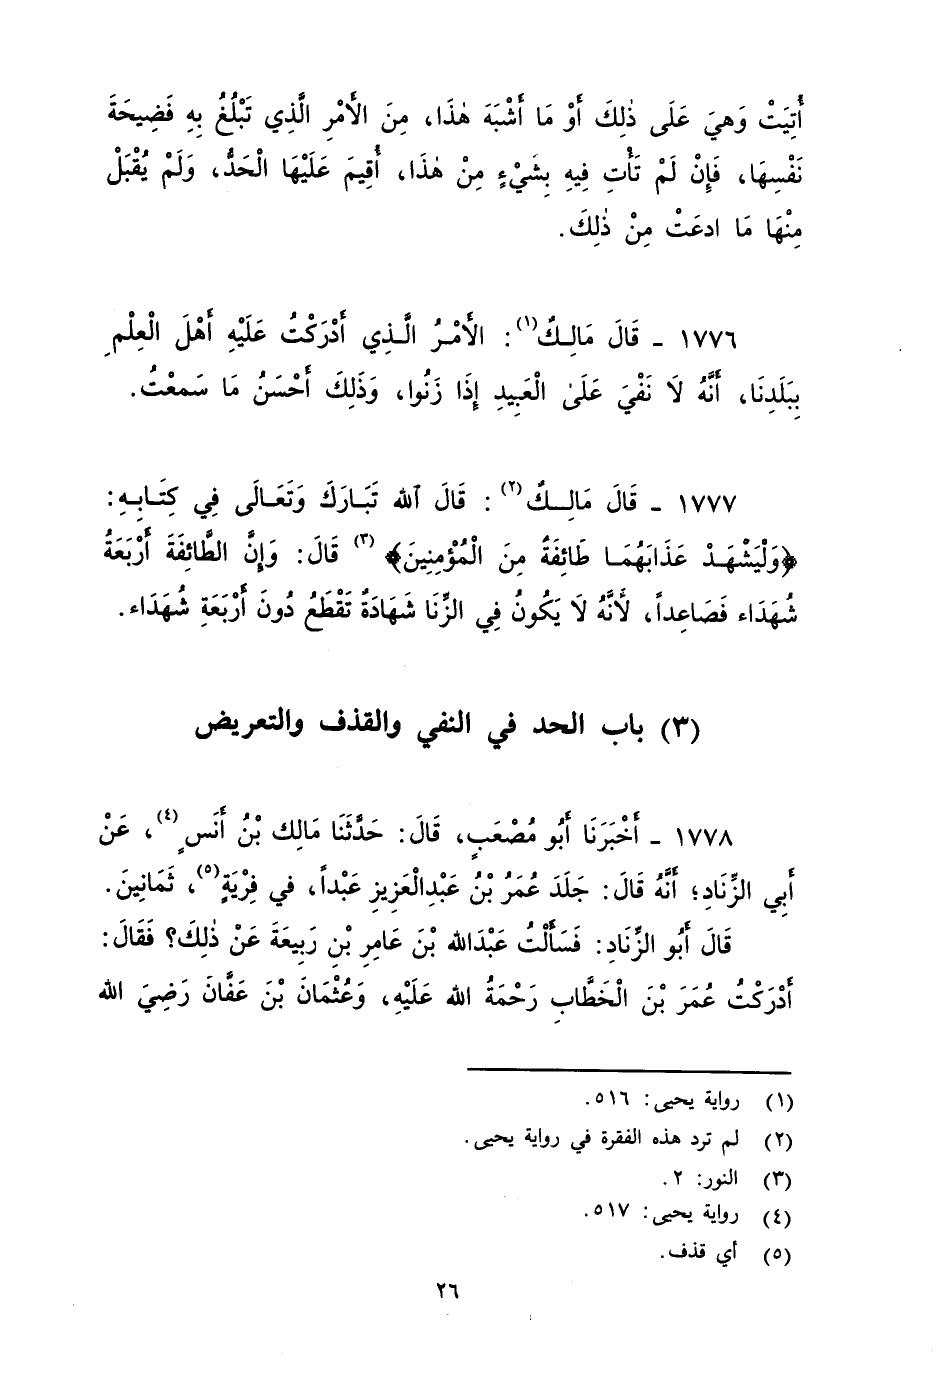 أُتِيَتْ وَهِيَ عَلَى ذٰلِكَ أَوْ مَا أَشْبَهَ هٰذَا، مِنَ الأَمْرِ الَّذِي تَبْلُغُ بِهِ فَضِيحَةَ
نَفْسِهَا، فَإِنْ لَمْ تَأْتِ فِيهِ بِشَيْءٍ مِنْ هٰذَا، أُقِيمَ عَلَيْهَا الْحَدُّ، وَلَمْ يُقْبَلْ
مِنْهَا مَا ادعَتْ مِنْ ذٰلِكَ.
١٧٧٦ ـ قَالَ مَالِكٌ(١): الأَمْرُ الَّذِي أَدْرَكْتُ عَلَيْهِ أَهْلَ الْعِلْمِ
بِبَلَدِنَا، أَنَّهُ لَا نَفْيَ عَلَىٰ الْعَبِيدِ إِذَا زَنُوا، وَذَلِكَ أَحْسَنُ مَا سَمِعْتُ.
١٧٧٧ ـ قَالَ مَالِكٌ(٢): قَالَ ٱلله تَبَارَكَ وَتَعَالَى فِي كِتَابِهِ:
﴿وَلْيَشْهَدْ عَذَابَهُمَا طَائِفَةٌ مِنَ الْمُؤْمِنِينَ﴾(٣) قَالَ: وَإِنَّ الطَّائِفَةَ أَرْبَعَةُ
شُهَدَاء فَصَاعِداً، لأَنَّهُ لَا يَكُونُ فِي الزِّنَا شَهَادَةٌ تَقْطَعُ دُونَ أَرْبَعَةِ شُهَدَاء.
(٣) باب الحد في النفي والقذف والتعريض
١٧٧٨ ـ أَخْبَرَنَا أَبُو مُصْعَبٍ، قَالَ: حَدَّثَنَا مَالِك بْنُ أَنَسٍ(٤)، عَنْ
أَبِي الزِّنَادِ؛ أَنَّهُ قَالَ: جَلَدَ عُمَرُ بْنُ عَبْدِالْعَزِيزِ عَبْداً، في فِرْيَةٍ(٥)، ثَمَانِينَ.
قَالَ أَبُو الزِّنَادِ: فَسَأَلْتُ عَبْدَالله بْنَ عَامِرِ بْنِ رَبِيعَةَ عَنْ ذٰلِكَ؟ فَقَالَ:
أَدْرَكْتُ عُمَرَ بْنَ الْخَطَّابِ رَحْمَةُ الله عَلَيْهِ، وَعُثْمَانَ بْنَ عَفَّانَ رَضِيَ الله
(١) رواية يحيى: ٥١٦.
(٢) لم ترد هذه الفقرة في رواية يحيى.
(٣) النور: ٢.
(٤) رواية يحيى: ٥١٧.
(٥) أي قذف.
٢٦